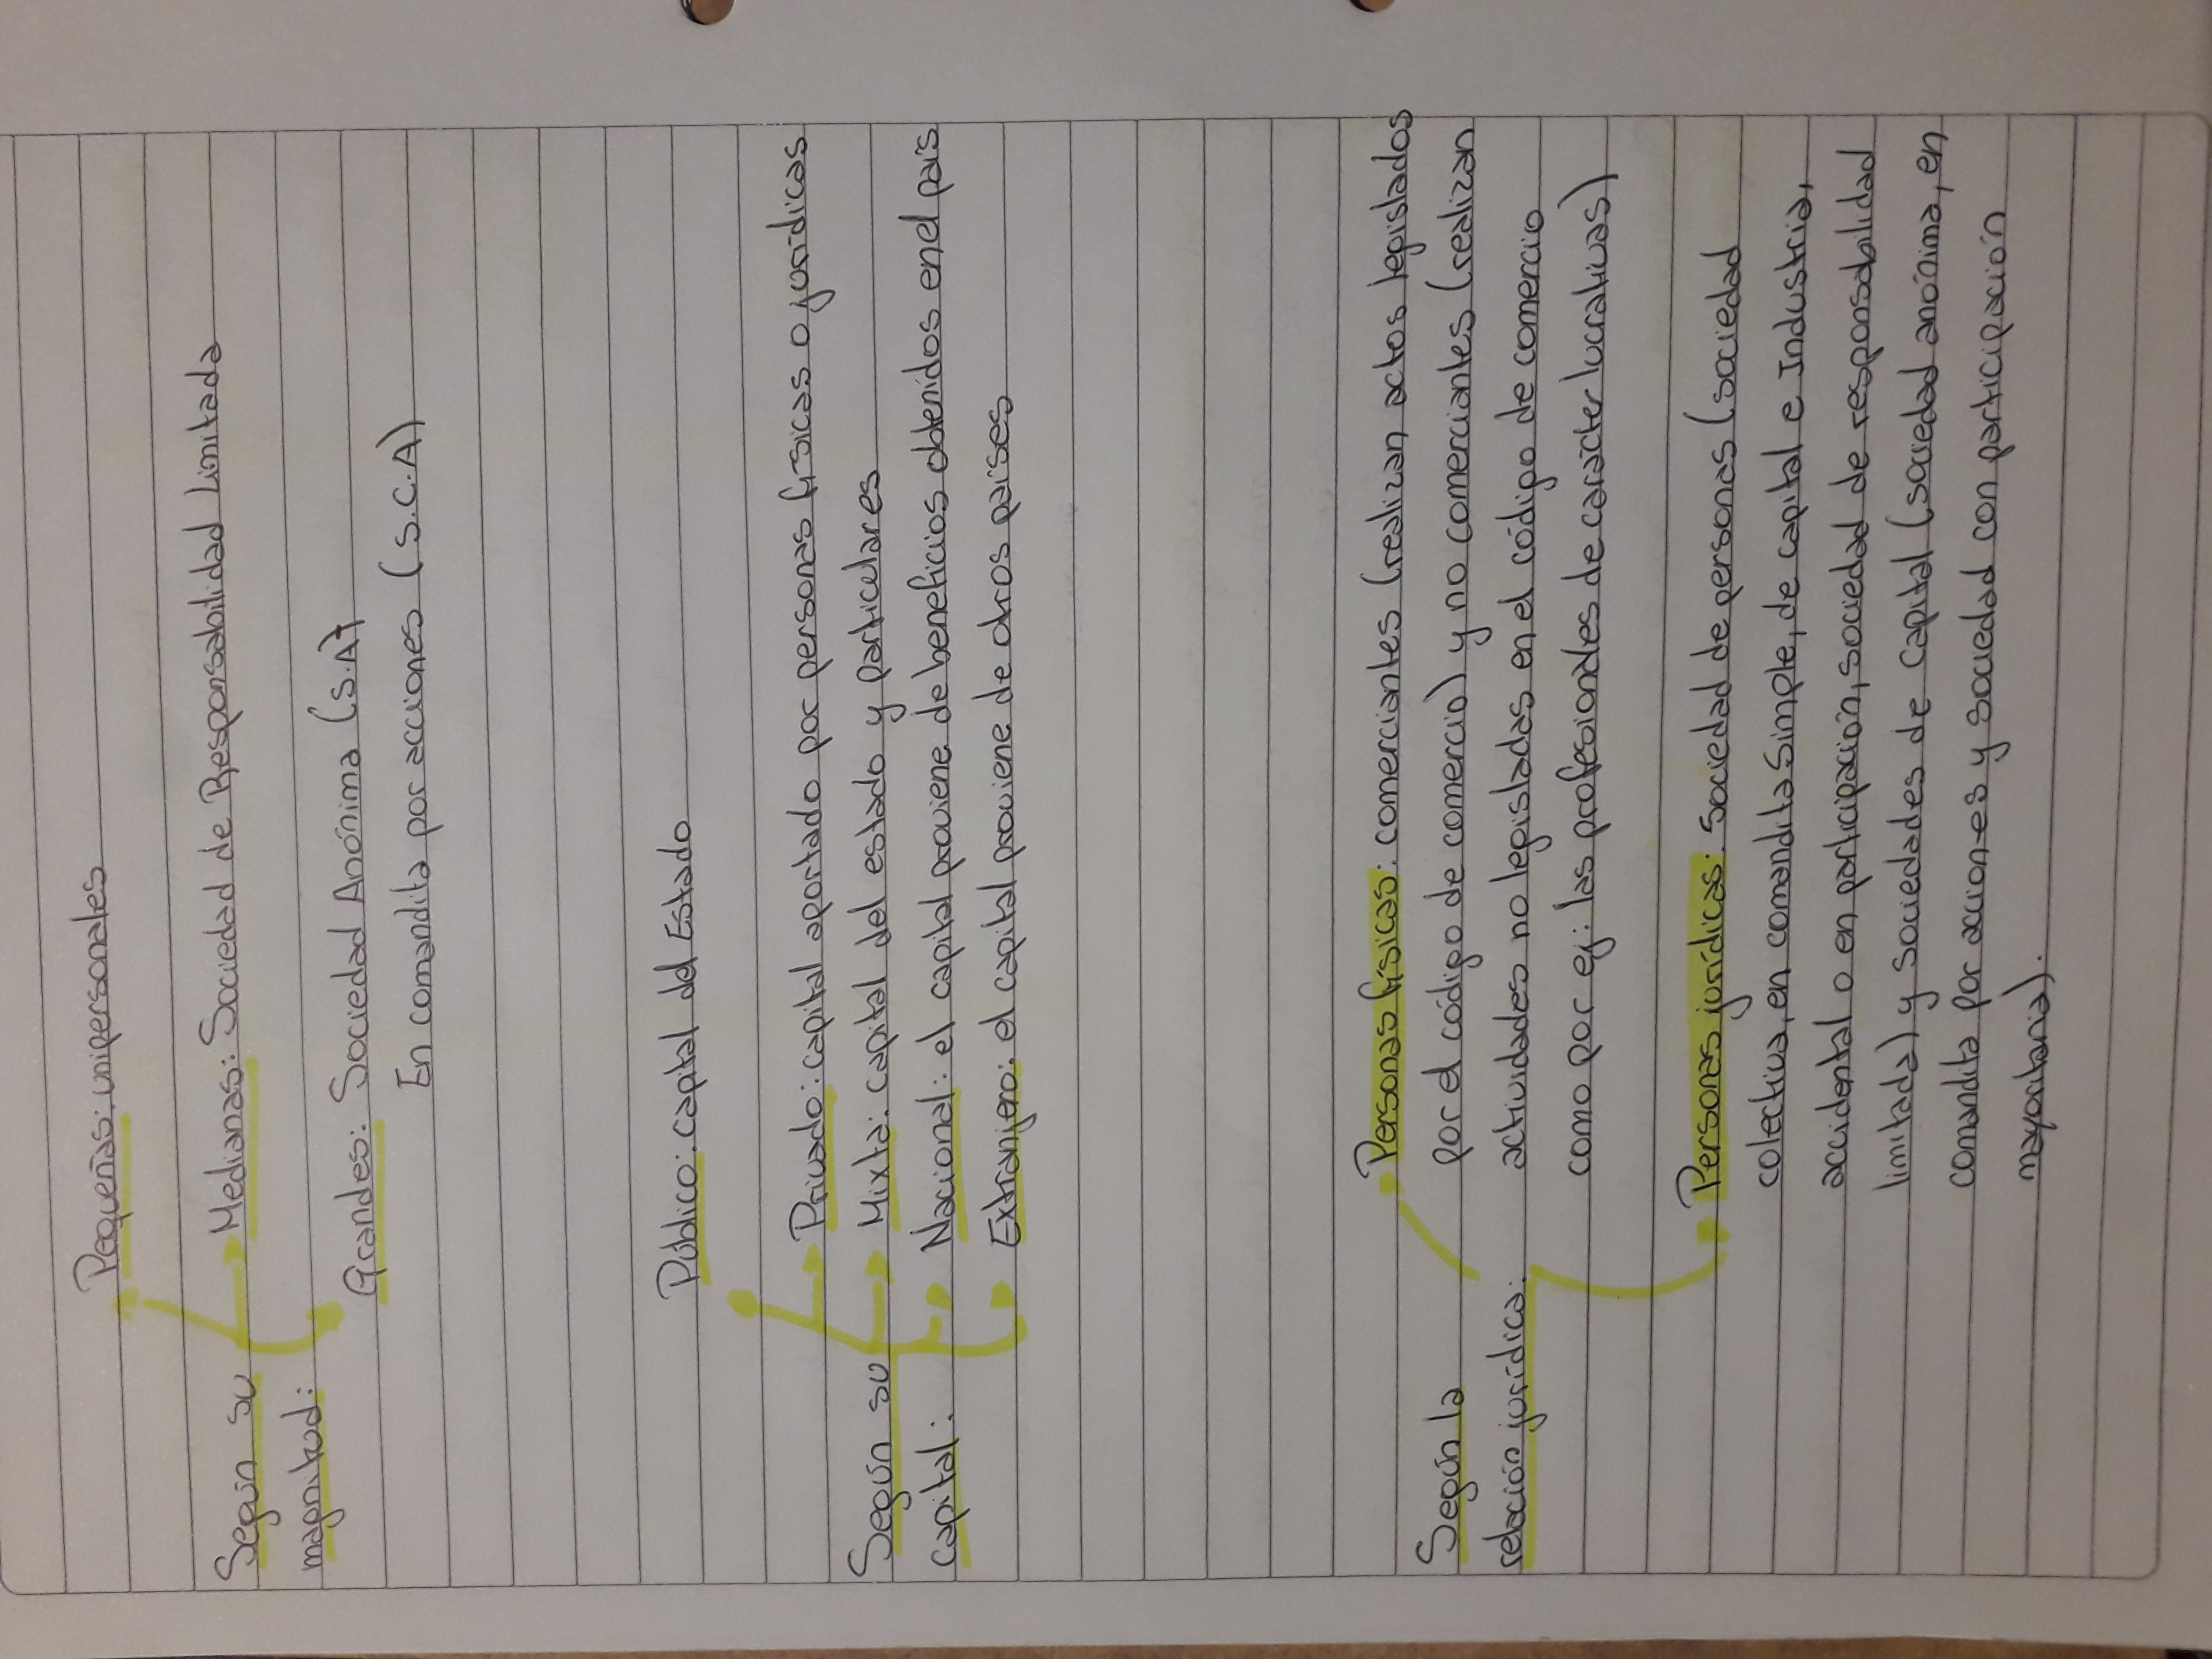 Pequeñas: unipersonales
Según su
magnitud:
Medianas: Sociedad de Responsabilidad Limitada
Grandes: Sociedad Anónima (S.A)
En comandita por acciones (S.C.A)
Público: capital del Estado
Según su
capital:
Privado: capital aportado por personas físicas o jurídicas
Mixta: capital del estado y particulares
Nacional: el capital proviene de beneficios obtenidos en el país
Extranjero: el capital proviene de otros países
Según la
relación jurídica:
Personas físicas: comerciantes (realizan actos legislados
por el código de comercio) y no comerciantes (realizan
actividades no legisladas en el código de comercio
como por ej: las profesionales de carácter lucrativas)
Personas jurídicas: Sociedad de personas (sociedad
colectiva, en comandita Simple, de capital e Industria,
accidental o en participación, sociedad de responsabilidad
limitada) y sociedades de capital (sociedad anónima, en
comandita por acciones y sociedad con participación
mayoritaria).